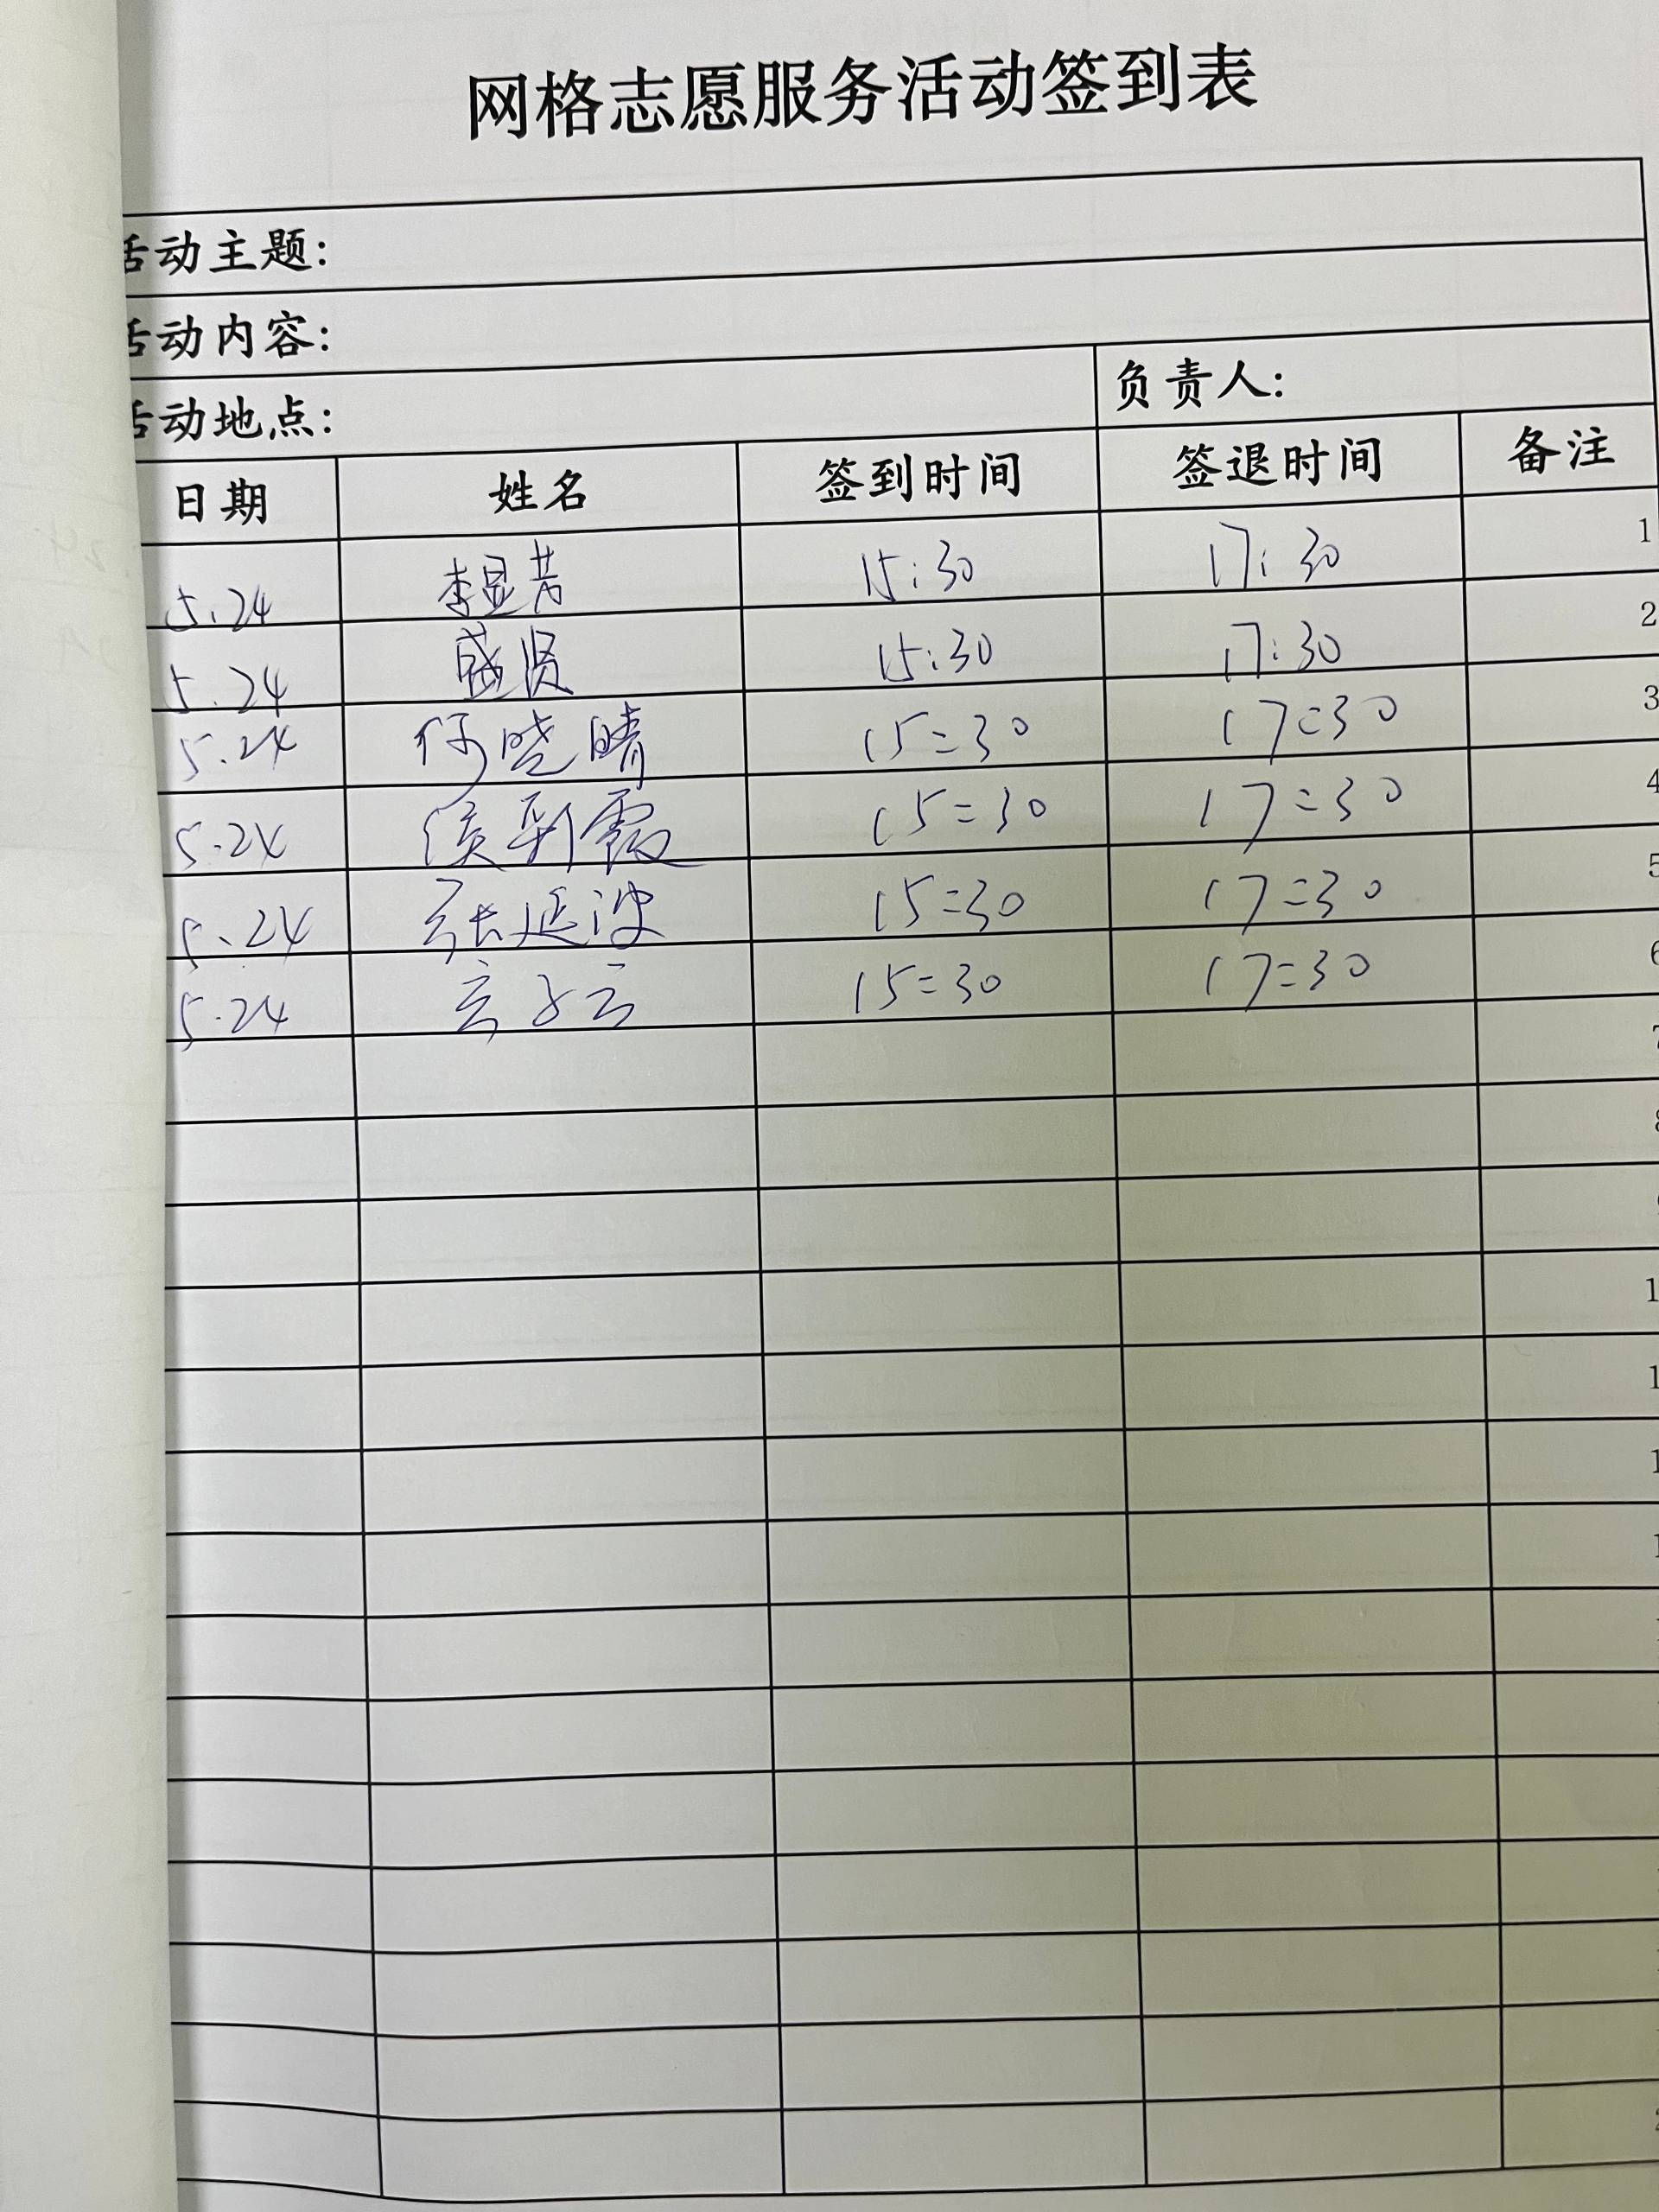 网格志愿服务活动签到表
活动主题:
活动内容:
活动地点: 负责人:
日期 姓名 签到时间 签退时间 备注
5.24 李显芳 15:30 17:30 1
5.24 盛贤 15:30 17:30 2
5.24 何晓晴 15:30 17:30 3
5.24 侯彩霞 15:30 17:30 4
5.24 张延波 15:30 17:30 5
5.24 15:30 17:30 6
7
8
1
1
1
1